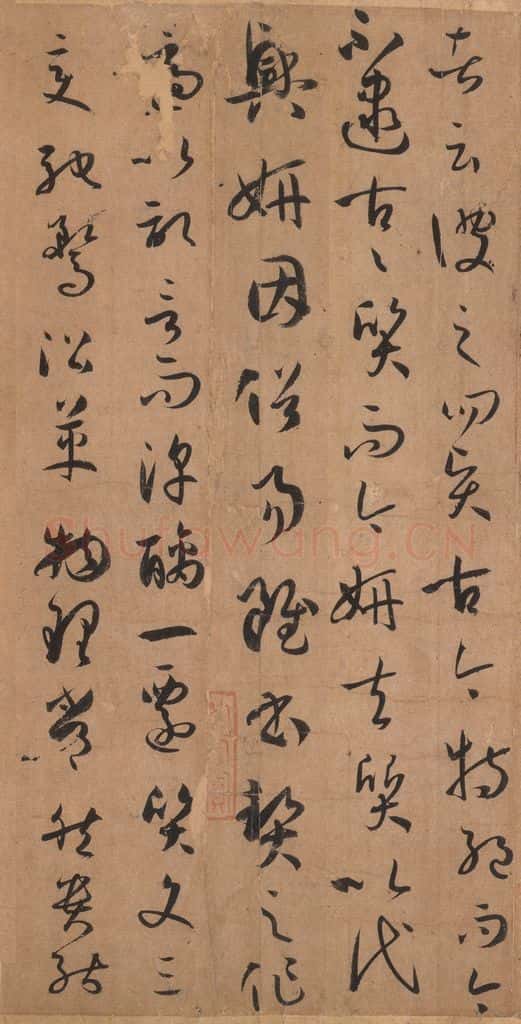 者云彼之四賢古今特絕而今
不逮古々質而今妍夫質以代
興妍因俗易雖書契之作
適以記言而淳醨一遷質文三
變馳騖沿革物理常然貴能
Shufawang.CN